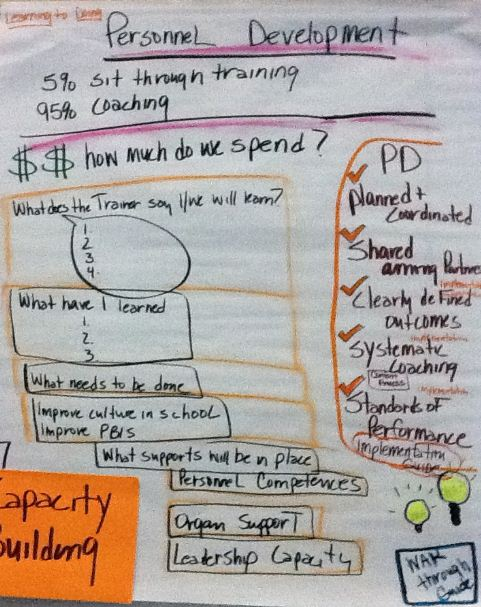 Learning to Doing
Personnel Development
5% sit through training
95% Coaching
$$ how much do we spend?
What does the Trainer say I/we will learn?
1.
2
3
4.
What have I learned
1.
2.
3.
What needs to be done
Improve culture in school
Improve PBIS
What supports will be in place
Personnel Competences
Organ Support
Leadership Capacity
Capacity
Building
PD
Planned +
Coordinated
Shared
among Partners
Implementation
Clearly defined
outcomes
Implementation
Systematic
Coaching
Implementation
Standards of
Performance
Implementation
Walk
through
Guide